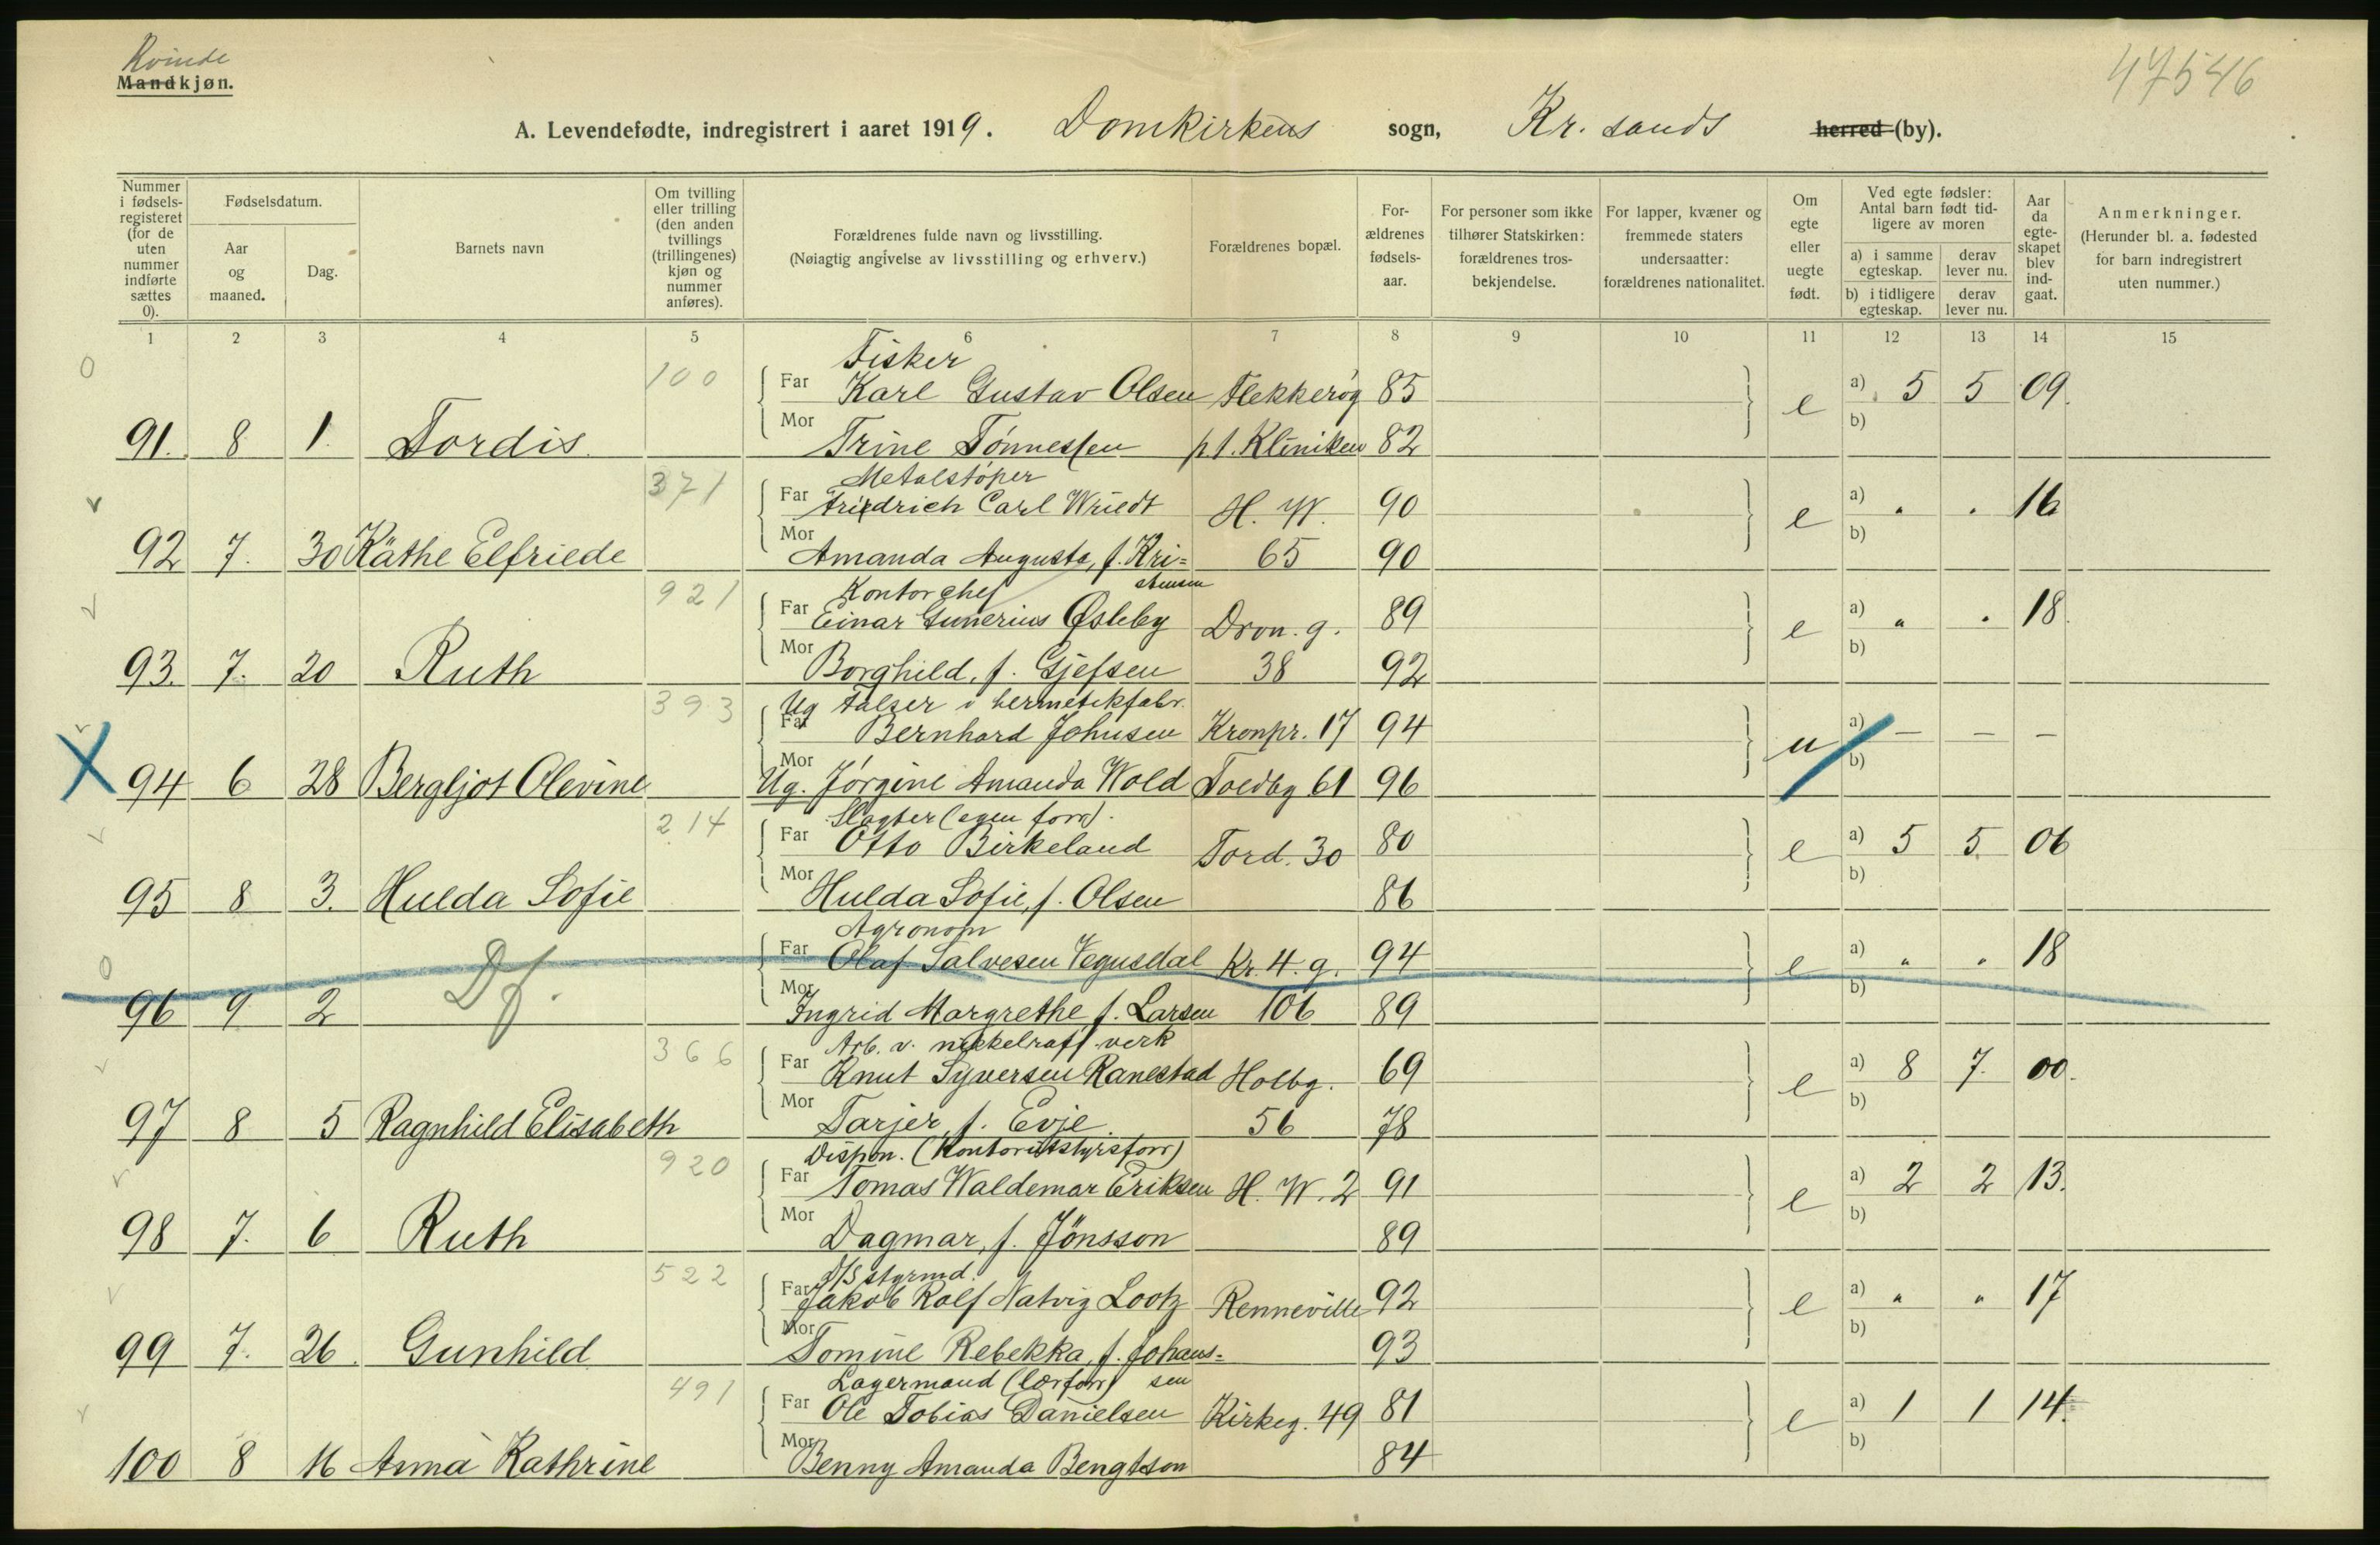 Kvinde
Mandkjøn.
47546
A. Levendefødte, indregistrert i aaret 1919. Domkirkens sogn, Kr. sands herred (by).
Nummer i fødselsregisteret (for de uten nummer indførte sættes 0).
Fødselsdatum.
Aar og maaned.
Dag.
Barnets navn
Om tvilling eller trilling (den anden tvillings (trillingenes) kjøn og nummer anføres).
Forældrenes fulde navn og livsstilling.
(Nøiagtig angivelse av livsstilling og erhverv.)
Forældrenes bopæl.
Forældrenes fødselsaar.
For personer som ikke tilhører Statskirken: forældrenes trosbekjendelse.
For lapper, kvæner og fremmede staters undersaatter: forældrenes nationalitet.
Om egte eller uegte født.
Ved egte fødsler: Antal barn født tidligere av moren
a) i samme egteskap. derav lever nu.
b) i tidligere egteskap. derav lever nu.
Aar da egteskapet blev indgaat.
Anmerkninger.
(Herunder bl. a. fødested for barn indregistrert uten nummer.)
1 2 3 4 5 6 7 8 9 10 11 12 13 14 15
0 100 Fisker
Far Karl Gustav Olsen Flekkerøg 85 e a) 5 5 09.
91. 8 1. Tordis Mor Trine Tønnessen p t. Kliniken 82 b)
v 371 Metalstøper
Far Friedrich Carl Wriedt H. W. 90 e a) " " 16
92 7. 30 Käthe Elfriede Mor Amanda Augusta, f. Kri= 65 90 b)
stensen
v 921 Kontorchef
Far Einar Gunerius Østeby Dron. g. 89 e a) " " 18.
93. 7. 20 Ruth Mor Borghild, f. Gjefsen 38 92 b)
v 393 Ug falser i hermetikfabr.
Far Bernhard Johnsen Kronpr. 17 94 u a) — — —
X 94 6 28 Bergljot Olevine Mor Ug. Jørgine Amanda Wold Toldbg 61 96 b)
v 214 Slagter (egen forr).
Far Otto Birkeland Tord. 30 80 e a) 5 5. 06
95 8 3. Hulda Sofie Mor Hulda Sofie, f. Olsen 86 b)
0 Agronom
Far Olaf Salvesen Vegusdal Kr. 4. g. 94 e a) " " 18
96 9 2 Df. Mor Ingrid Margrethe f. Larsen 106 89 b)
v 366 Arb. v. nikkelraff. verk
Far Knut Syversen Ranestad Holbg. 69 e a) 8 7. 00.
97 8 5 Ragnhild Elisabeth Mor Tarjer, f. Evje. 56 78 b)
v 920 Dispon. (Kontorutstyrsforr)
Far Tomas Waldemar Eriksen H. W. 2 91 e a) 2 2 13.
98 7. 6 Ruth Mor Dagmar, f. Jönsson 89 b)
v 522 D/S styrmd.
Far Jakob Rolf Natvig Lootz Renneville 92 e a) " " 17
99 7. 26. Gunhild Mor Tomine Rebekka, f. Johans= 93 b)
sen
v 491 Lagermand (lærforr)
Far Ole Tobias Danielsen Kirkeg. 49 81 e a) 1 1 14.
100 8 16 Anna Kathrine Mor Benny Amanda Bengtson 84 b)